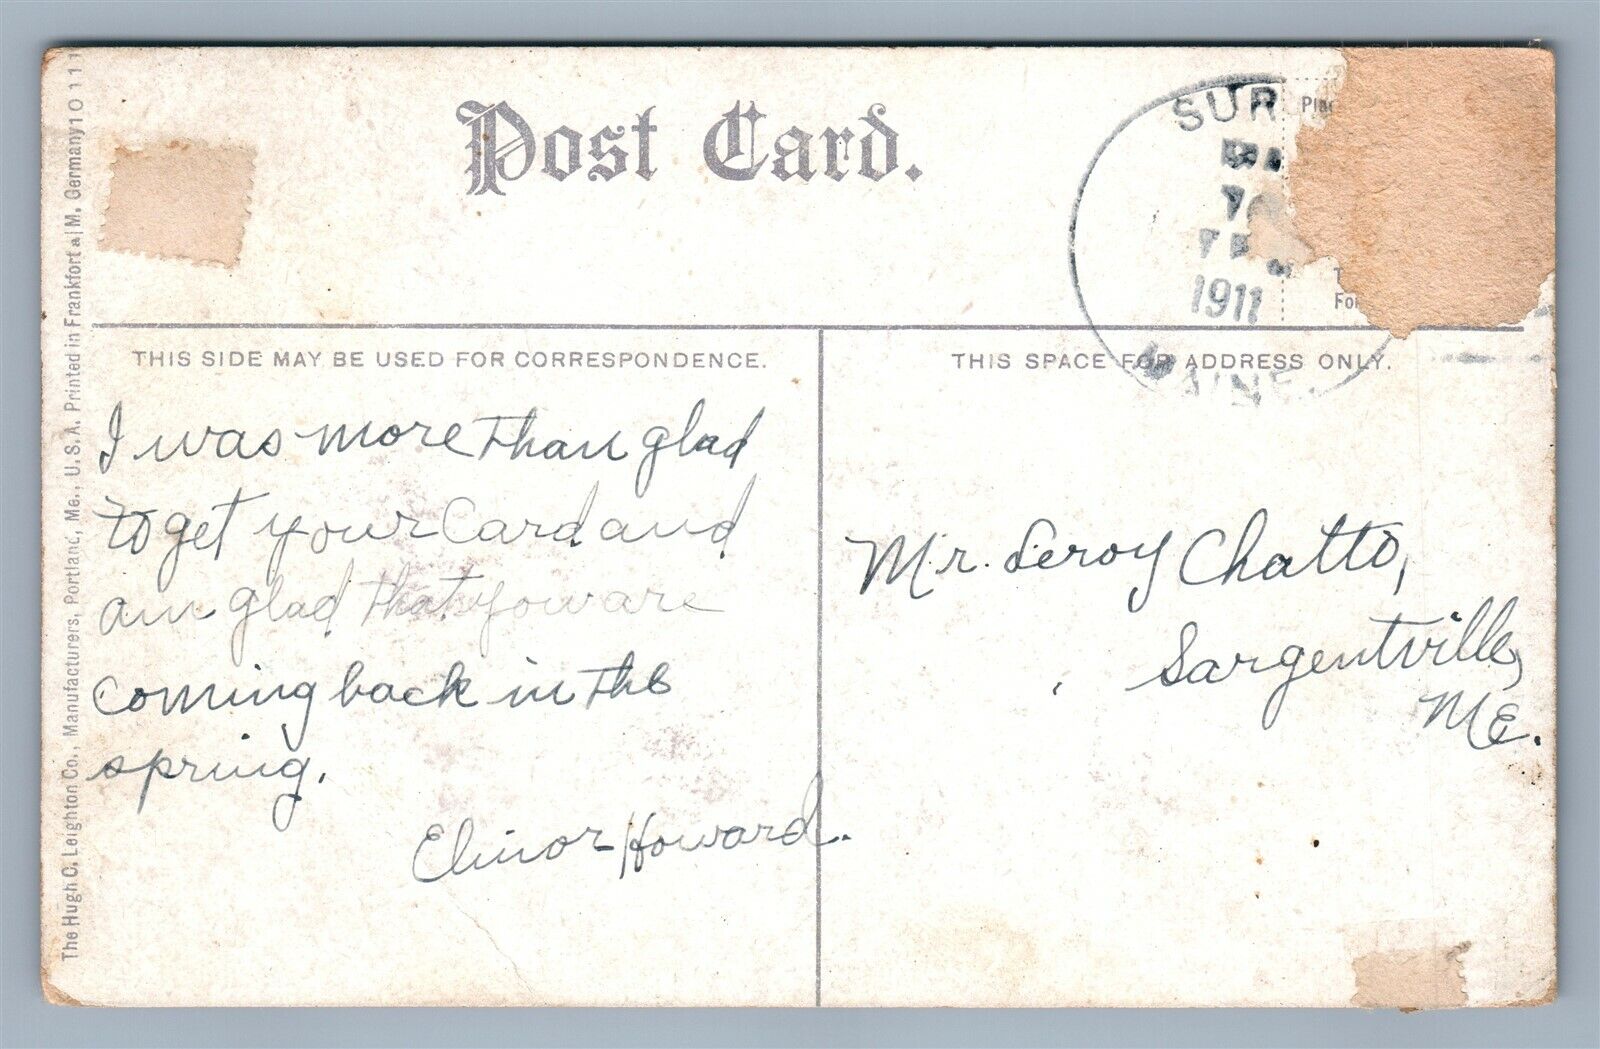 Post Card.
SUR
1911
MAINE.
THIS SIDE MAY BE USED FOR CORRESPONDENCE.
THIS SPACE FOR ADDRESS ONLY.
I was more than glad
to get your Card and
am glad that you are
coming back in the
spring.
Elinor Howard.
Mr. Leroy Chatto,
Sargentville,
ME.
The Hugh C. Leighton Co., Manufacturers, Portland, Me., U.S.A. Printed in Frankfort a|M. Germany 10111